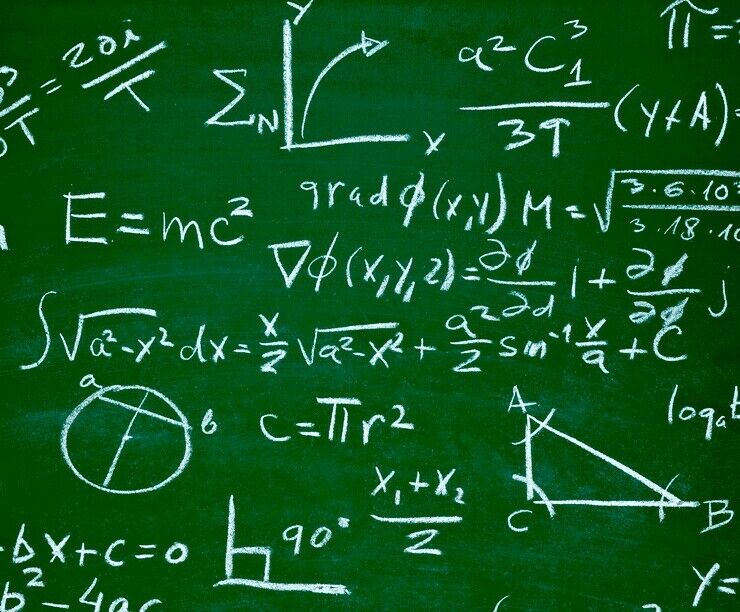 π =
= 20i / T
Σ N
Y
X
a² C₁³ / 39 (Y+A) =
E = mc²
grad ϕ(x,y) M = √(3·6·10³ / 3·18·10
∇ϕ(X,Y,Z) = ∂ϕ/∂d i + ∂ϕ/∂ϕ j
∫√a²-x² dx = x/2 √a²-x² + a²/2 sin⁻¹ x/a + C
a
b
c = πr²
A
C
B
logₐb
90°
X₁ + X₂ / 2
-bX + C = 0
b² - 4ac
Y=